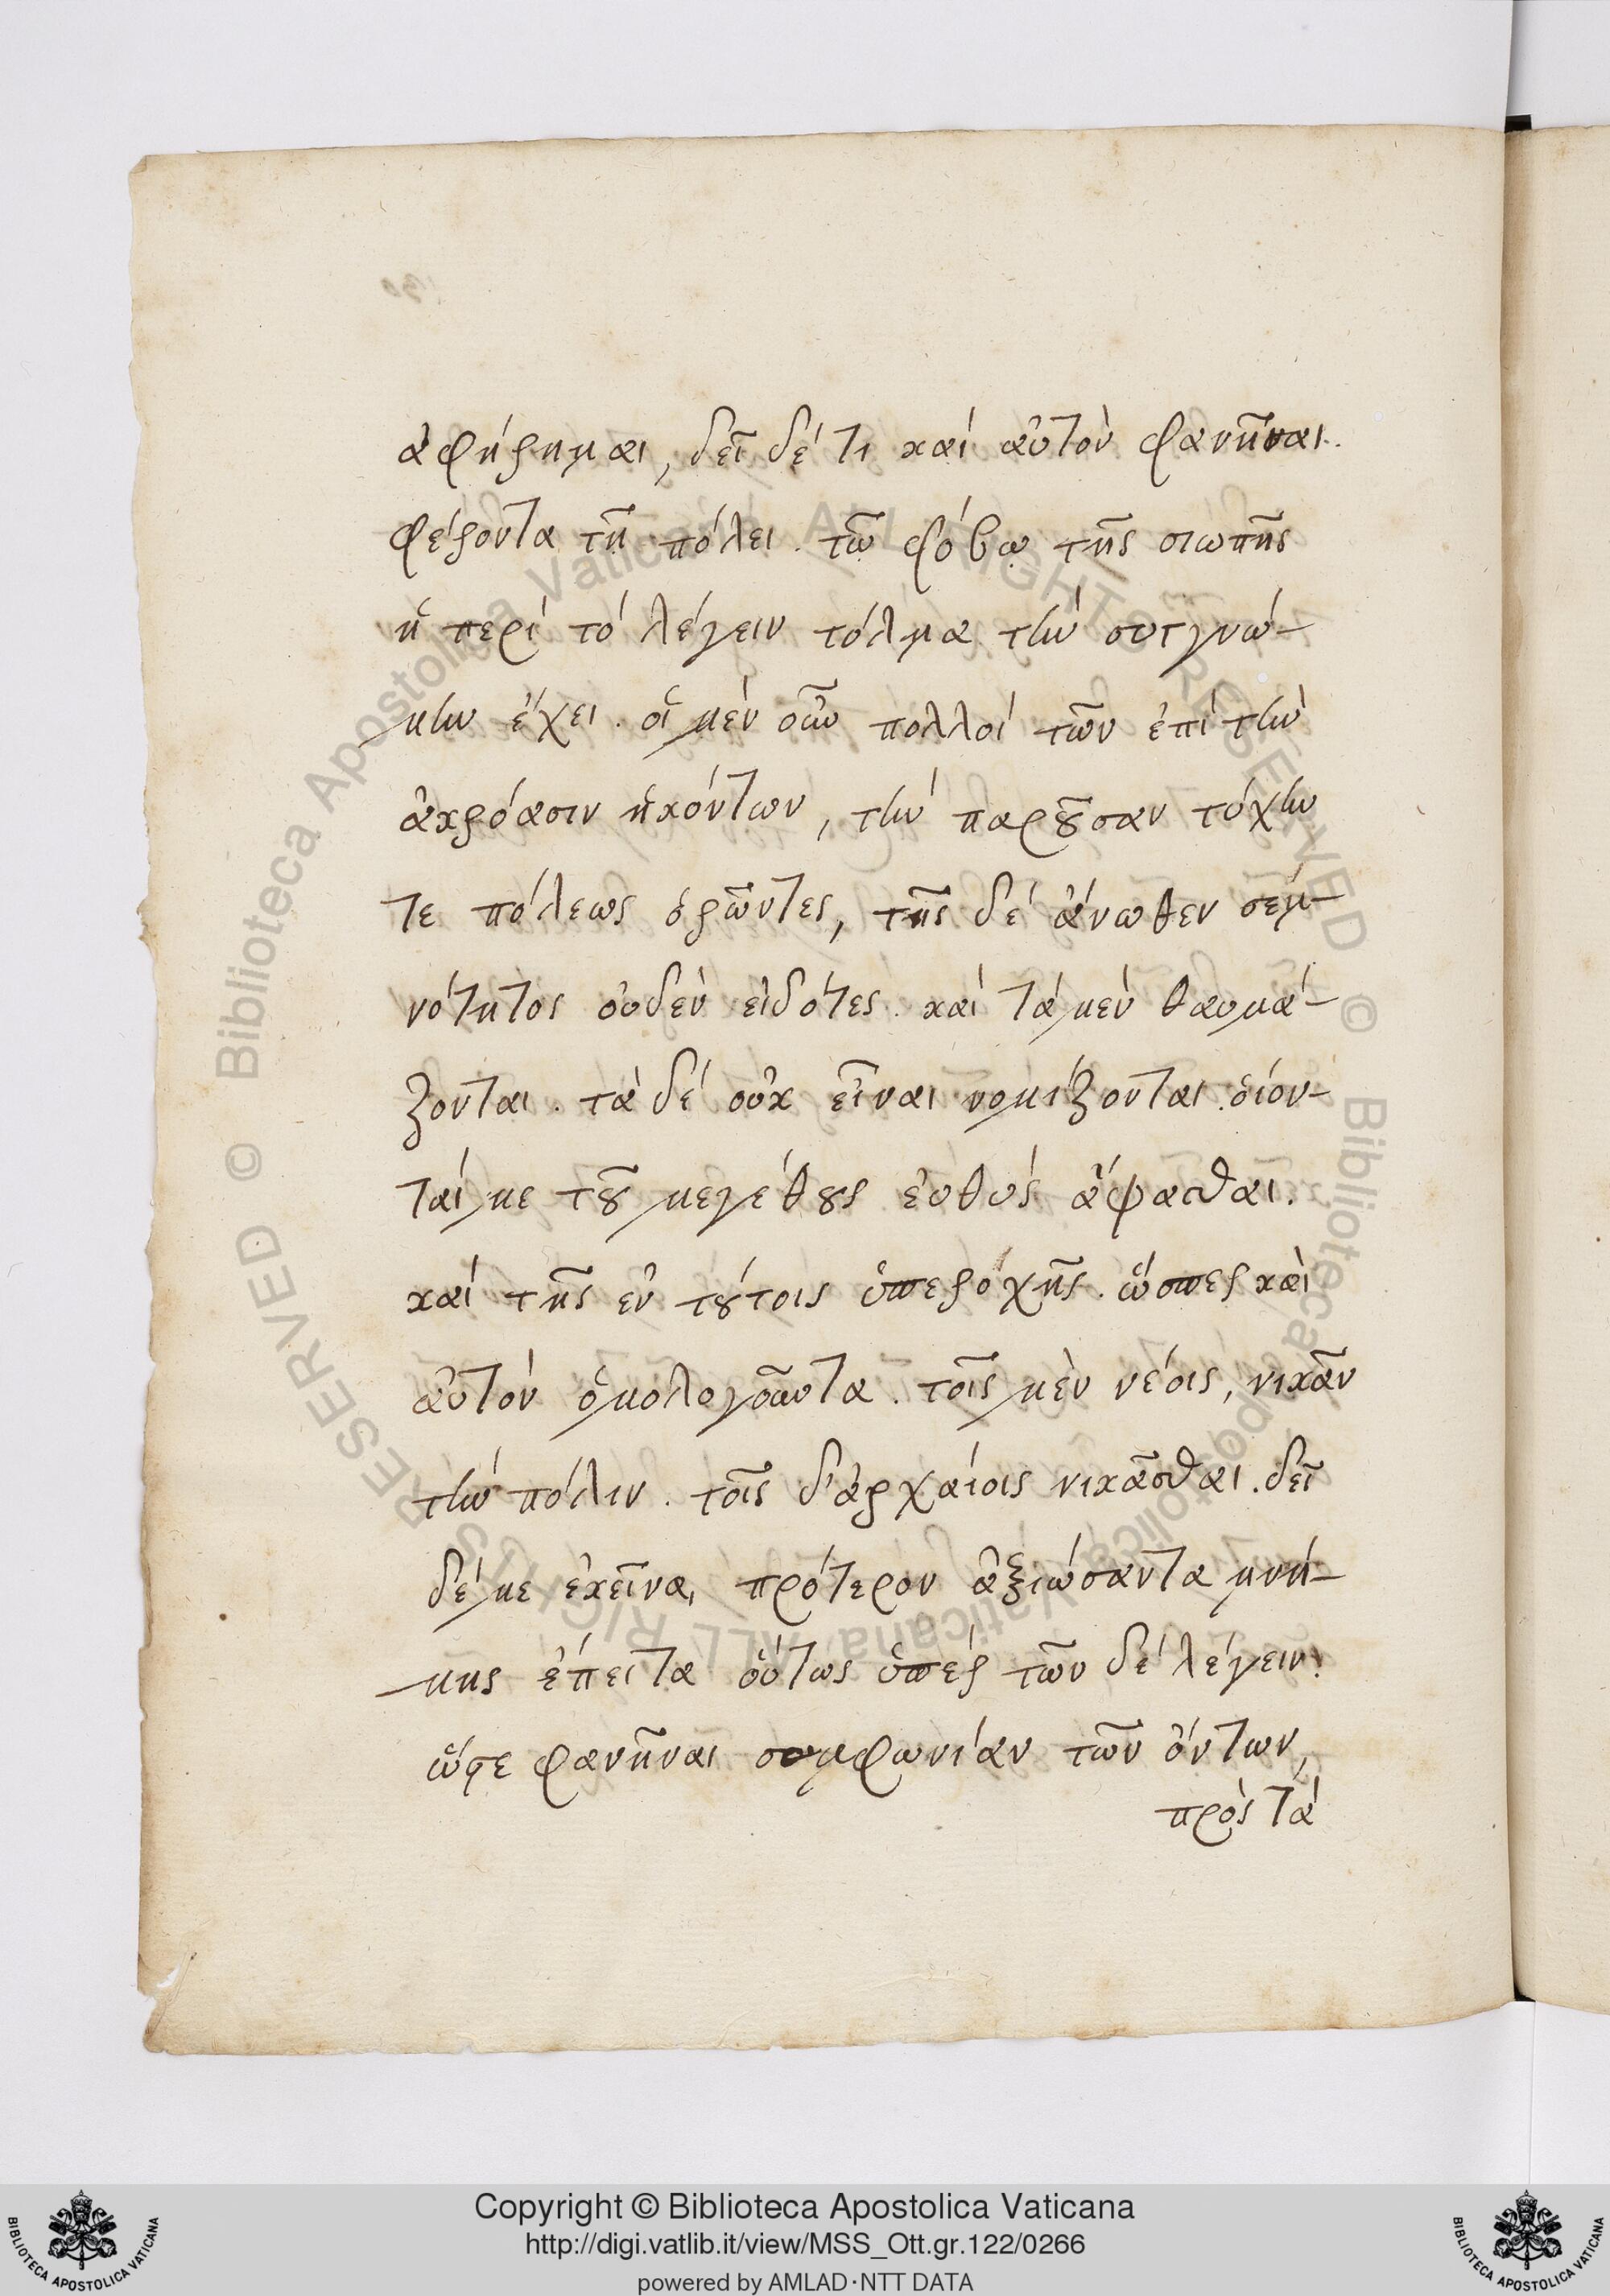 ἀφήρημαι, δεῖ δέ τι καὶ αὐτὸν φανῆναι.
φέροντα τῇ πόλει. τῷ φόβῳ τῆς σιωπῆς
ἡ περὶ τὸ λέγειν τόλμα τὴν συγγνώ-
μην ἔχει. οἱ μὲν οὖν πολλοὶ τῶν ἐπὶ τὴν
ἀκρόασιν ἡκόντων, τὴν παροῦσαν τύχην
τε πόλεως ὁρῶντες, τῆς δὲ ἄνωθεν σεμ-
νότητος οὐδὲν εἰδότες. καὶ τὰ μὲν θαυμά-
ζονται. τὰ δὲ οὐκ εἶναι νομίζονται. οἴον-
ταί με τοῦ μεγέθους εὐθὺς ἅψασθαι.
καὶ τῆς ἐν τούτοις ὑπεροχῆς. ὥσπερ καὶ
αὐτὸν ὁμολογοῦντα. τοῖς μὲν νέοις, νικᾶν
τὴν πόλιν. τοῖς δ' ἀρχαίοις νικᾶσθαι. δεῖ
δέ με ἐκεῖνα, πρότερον ἀξιώσαντα μνή-
μης ἔπειτα οὕτως ὑπὲρ τῶν δὲ λέγειν.
ὥστε φανῆναι συμφωνίαν τῶν ὄντων,
πρὸς τὰ
© Biblioteca Apostolica Vaticana ALL RIGHTS RESERVED © Biblioteca Apostolica Vaticana ALL RIGHTS RESERVED
Copyright © Biblioteca Apostolica Vaticana
http://digi.vatlib.it/view/MSS_Ott.gr.122/0266
powered by AMLAD·NTT DATA
BIBLIOTECA APOSTOLICA VATICANA
BIBLIOTECA APOSTOLICA VATICANA